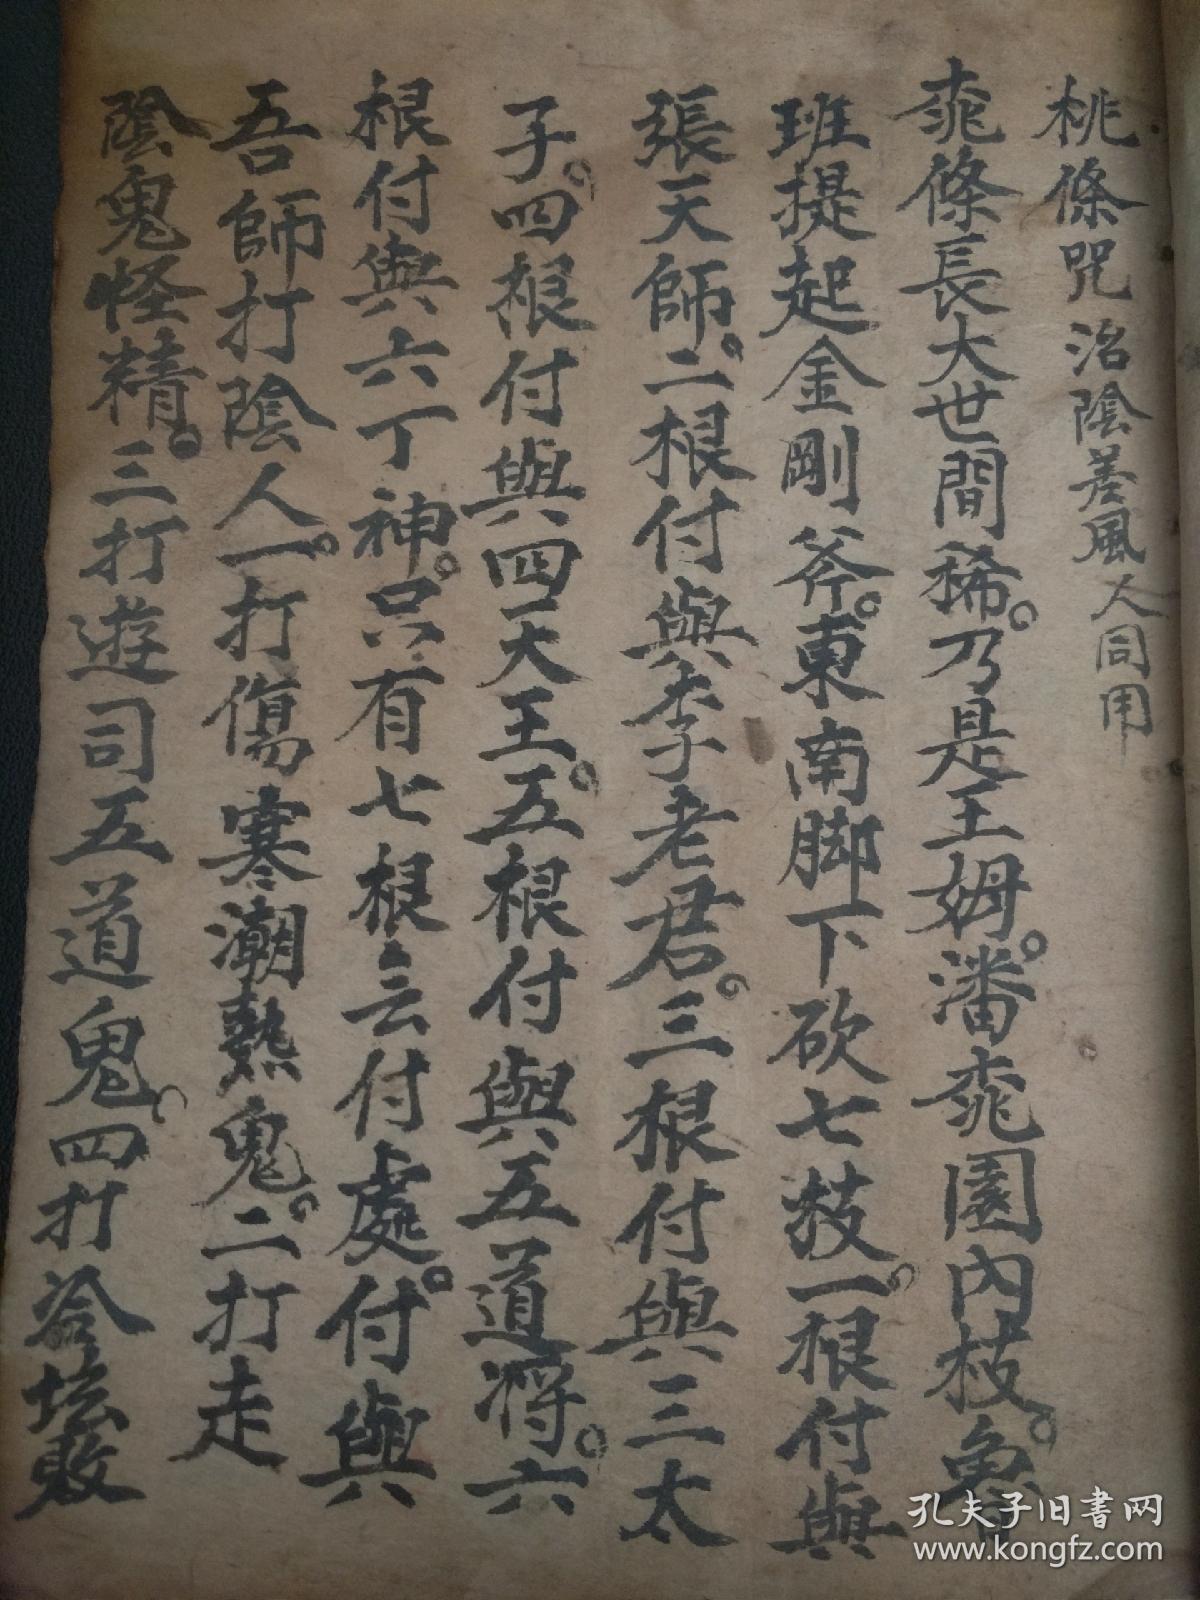 桃條咒治陰差風人同用
桃條長大世間稀。乃是王姆潘桃園內枝。魯
班提起金剛斧。東南脚下砍七枝。一根付與
張天師。二根付與李老君。三根付與三太
子。四根付與四天王。五根付與五道将。六
根付與六丁神。只有七根去付處。付與
吾師打陰人。一打傷寒潮熱鬼。二打走
陰鬼怪精。三打遊司五道鬼。四打坛敗
孔夫子旧书网
www.kongfz.com